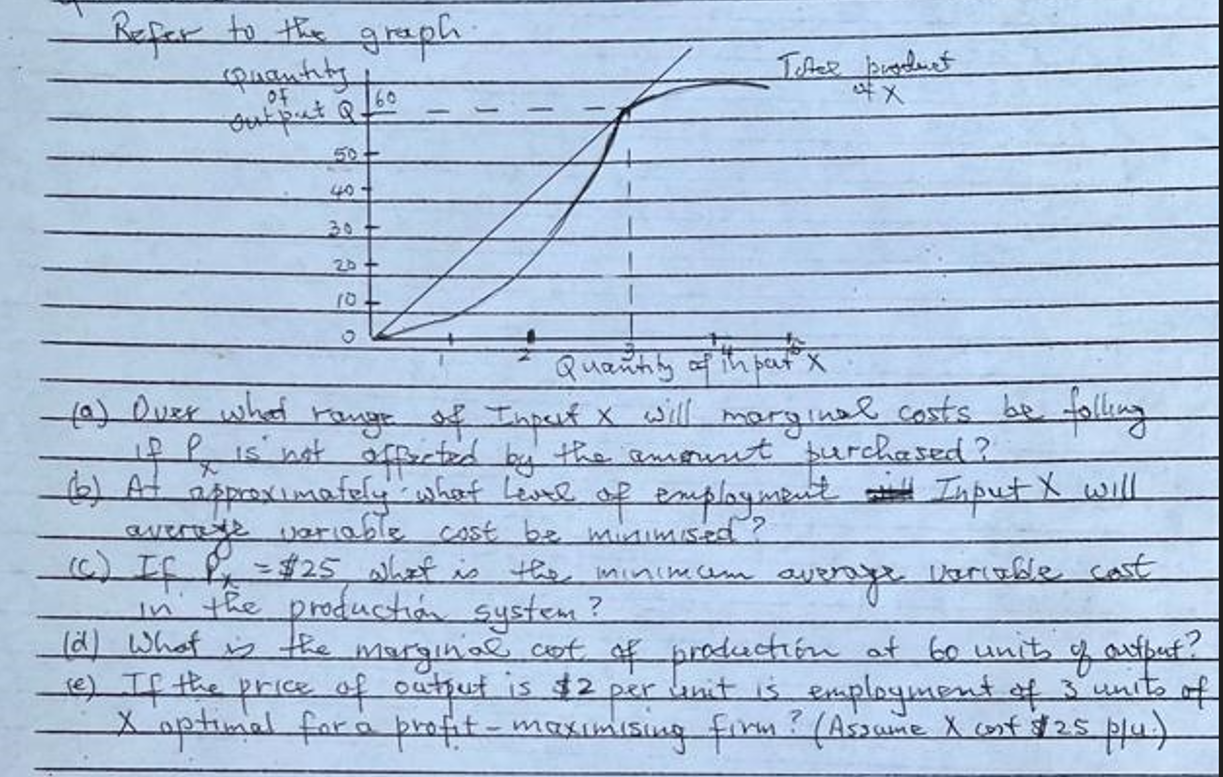 Refer to the graph.
Quantity
of
output Q
60
50
40
30
20
10
0
1
2
3
4
5
Total product
of X
Quantity of input X
(a) Over what range of Input X will marginal costs be falling
if Px is not affected by the amount purchased?
(b) At approximately what level of employment Input X will
average variable cost be minimised?
(c) If Px = $25, what is the minimum average variable cost
in the production system?
(d) What is the marginal cost of production at 60 units of output?
(e) If the price of output is $2 per unit is employment of 3 units of
X optimal for a profit-maximising firm? (Assume X cost $25 p/u.)